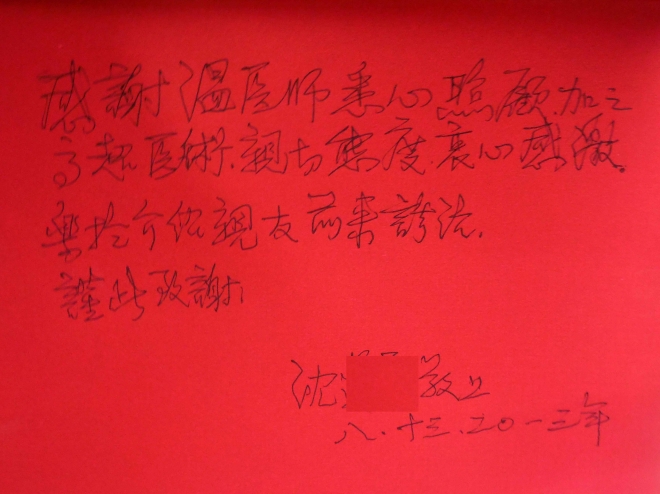 感謝温医师悉心照顧,加之
高超医術,親切態度,衷心感激。
樂於介绍親友前来診治.
謹此致謝!
沈 敬上
八.十三.二〇一三年